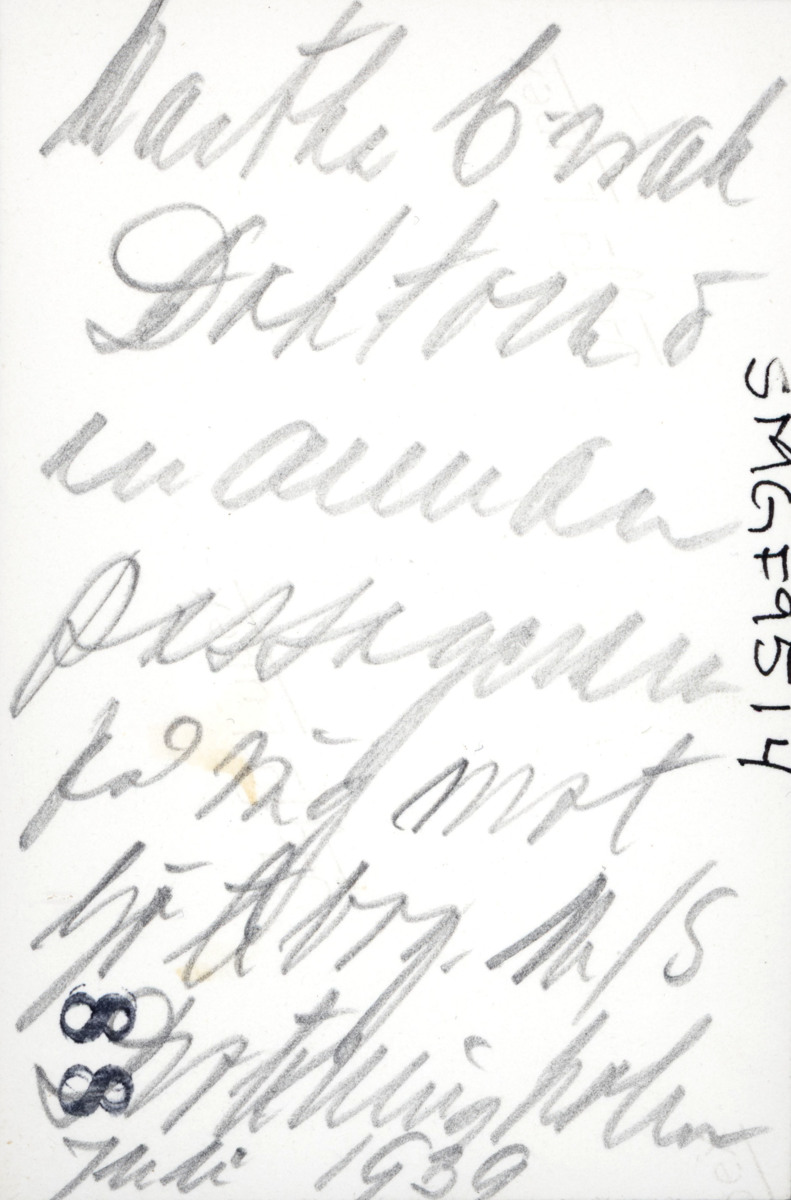 Märtha Cnak
Doktorn o
en annan
passagerare
på väg mot
Götbrg. M/S
Drottningholm
Juli 1939
SMGF9514
88